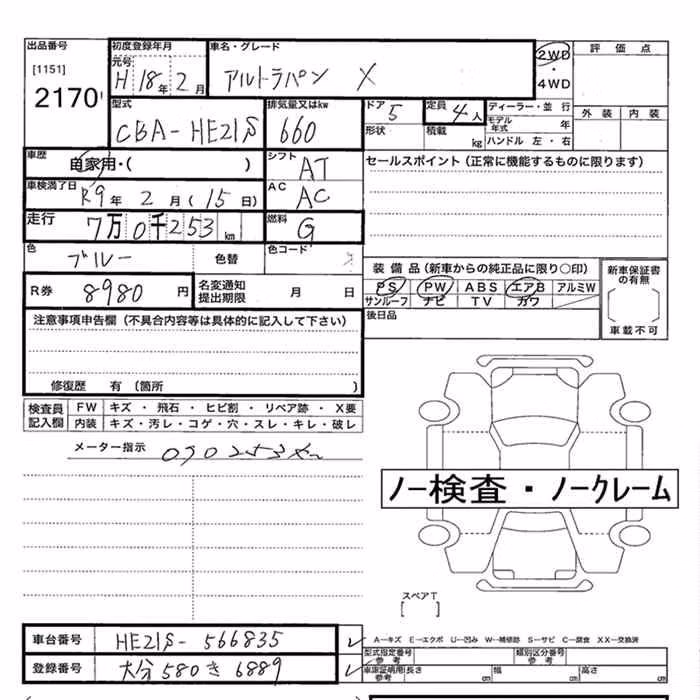 出品番号
[1151]
2170
初度登録年月
元号
H 18年 2月
車名・グレード
アルトラパン X
2WD
・
4WD
評価点
外装 内装
型式
CBA-HE21S
排気量又はkw
660
ドア 5
形状
定員 4人
積載 kg
ディーラー・並行
モデル年式 年
ハンドル 左・右
車歴
自家用・( )
シフト
AT
セールスポイント(正常に機能するものに限ります)
車検満了日
R9年 2月 (15日)
AC
AC
走行
7万0千253km
燃料
G
色
ブルー 色替
色コード
装備品(新車からの純正品に限り○印)
PS PW ABS エアB アルミW
サンルーフ ナビ TV カワ
新車保証書の有無
車載不可
R券 8980円
名変通知
提出期限 月 日
後日品
注意事項申告欄(不具合内容等は具体的に記入して下さい)
修復歴 有 (箇所 )
検査員記入欄
FW キズ・飛石・ヒビ割・リペア跡・X要
内装 キズ・汚レ・コゲ・穴・スレ・キレ・破レ
メーター指示
ノー検査・ノークレーム
スペアT
[ ]
A−キズ E−エクボ U−凹み W−補修跡 S−サビ C−腐食 XX−交換済
車台番号 HE21S-566835
型式指定番号参考
類別区分番号参考
登録番号 大分580き6889
車庫証明用参考
長さ cm 幅 cm 高さ cm